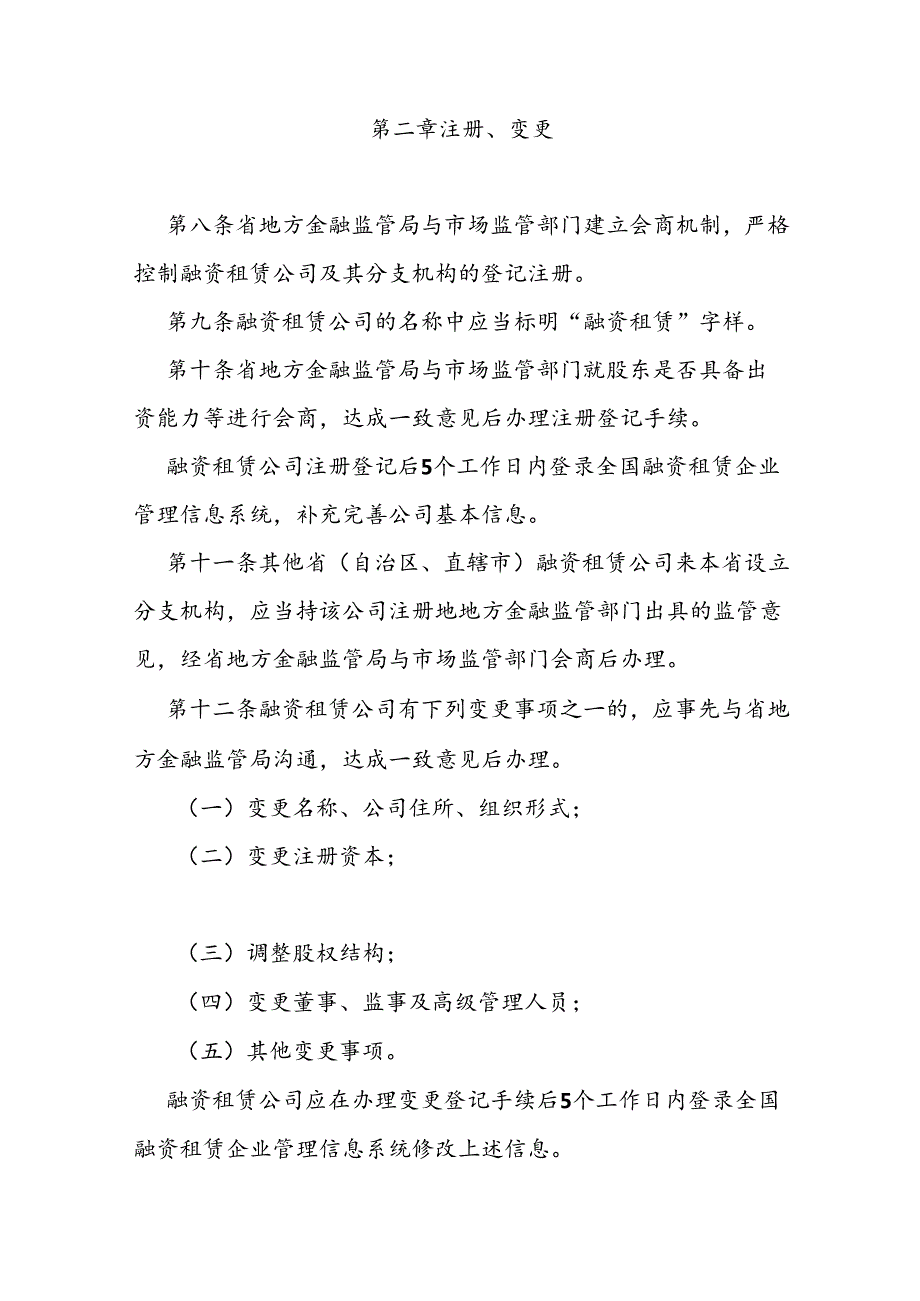 第二章注册、变更
第八条省地方金融监管局与市场监管部门建立会商机制，严格
控制融资租赁公司及其分支机构的登记注册。
第九条融资租赁公司的名称中应当标明“融资租赁”字样。
第十条省地方金融监管局与市场监管部门就股东是否具备出
资能力等进行会商，达成一致意见后办理注册登记手续。
融资租赁公司注册登记后5个工作日内登录全国融资租赁企业
管理信息系统，补充完善公司基本信息。
第十一条其他省（自治区、直辖市）融资租赁公司来本省设立
分支机构，应当持该公司注册地地方金融监管部门出具的监管意
见，经省地方金融监管局与市场监管部门会商后办理。
第十二条融资租赁公司有下列变更事项之一的，应事先与省地
方金融监管局沟通，达成一致意见后办理。
（一）变更名称、公司住所、组织形式；
（二）变更注册资本；
（三）调整股权结构；
（四）变更董事、监事及高级管理人员；
（五）其他变更事项。
融资租赁公司应在办理变更登记手续后5个工作日内登录全国
融资租赁企业管理信息系统修改上述信息。